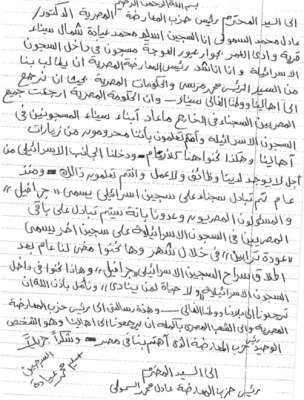 بسم الله الرحمن الرحيم
الى السيد المحترم رئيس حزب المعارضة المصرية الدكتور/
عادل محمد السمولي إنا السجين اسليم محمد عيادة شمال سيناء
قرية وادي العمر بجوار عبور العوجة مسجون في داخل السجون
الاسرائيلة وإنا اناشد رئيس المعارضة المصرية ان يطالب بنا
من السيد الرئيس محمد مرسي والحكومات المصرية بحيث ان نرجع
الى أهالينا وطننا الغالي سيناء وان الحكومة المصرية ارجعت جميع
المصريين السجناء في الخارج ماعاد أبناء سيناء المسجونين في
السجون الاسرائيلة وأنتم تعلمون بأننا محرومون من زيارات
أهالينا وهكذا كل عام ودخلنا الجانب الاسرائيلي من
أجل لا يوجد لدينا وظائف ولا عمل وانتم تعلمون ذالك ومنذ
عام تم تبادل سجناء على سجين اسرائيلي يسمى "جرافيل"
و المسؤلون المصريون وعدونا بانة سيتم تبادل على باقي
المصريين في السجون الاسرائيلة على سجين اخر يسمى
"عودة ترابين" في خلال شهر وها نحنوا مضى لنا عام بعد
اطلاق سراح السجين الاسرائيلي جرافيل وهاذا نحنوا في داخل
السجون الاسرائيلة ولا حياة لمن ينادي ونأمل باذن الله ان
ترجعونا الى بلادنا ووطننا الغالي وهذة رسالتي الى رئيس حزب المعارضة
المصرية والى الشعب المصري بأكمله ان يرجعونا الى أهالينا وهو الشخص
الوحيد حزب المعارضة الذي أهتم بنا في مصر وشكرا جزيلا
الى السيد المحترم
رئيس حزب المعارضة عادل محمد السمولي